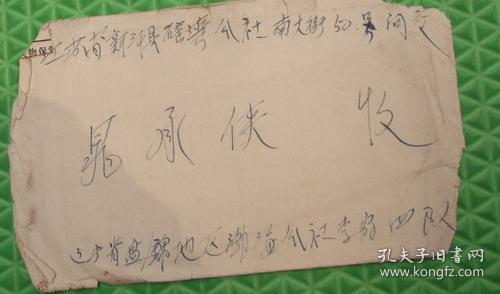 江苏省新沂县窑湾公社南大街50号问交
晁承侠 收
辽宁省盘锦地区渤海公社李家四队
孔夫子旧书网
www.kongfz.com